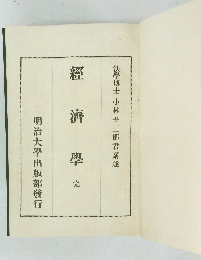 法學博士 小林丑三郎君講述
經濟學 完
明治大學出版部發行